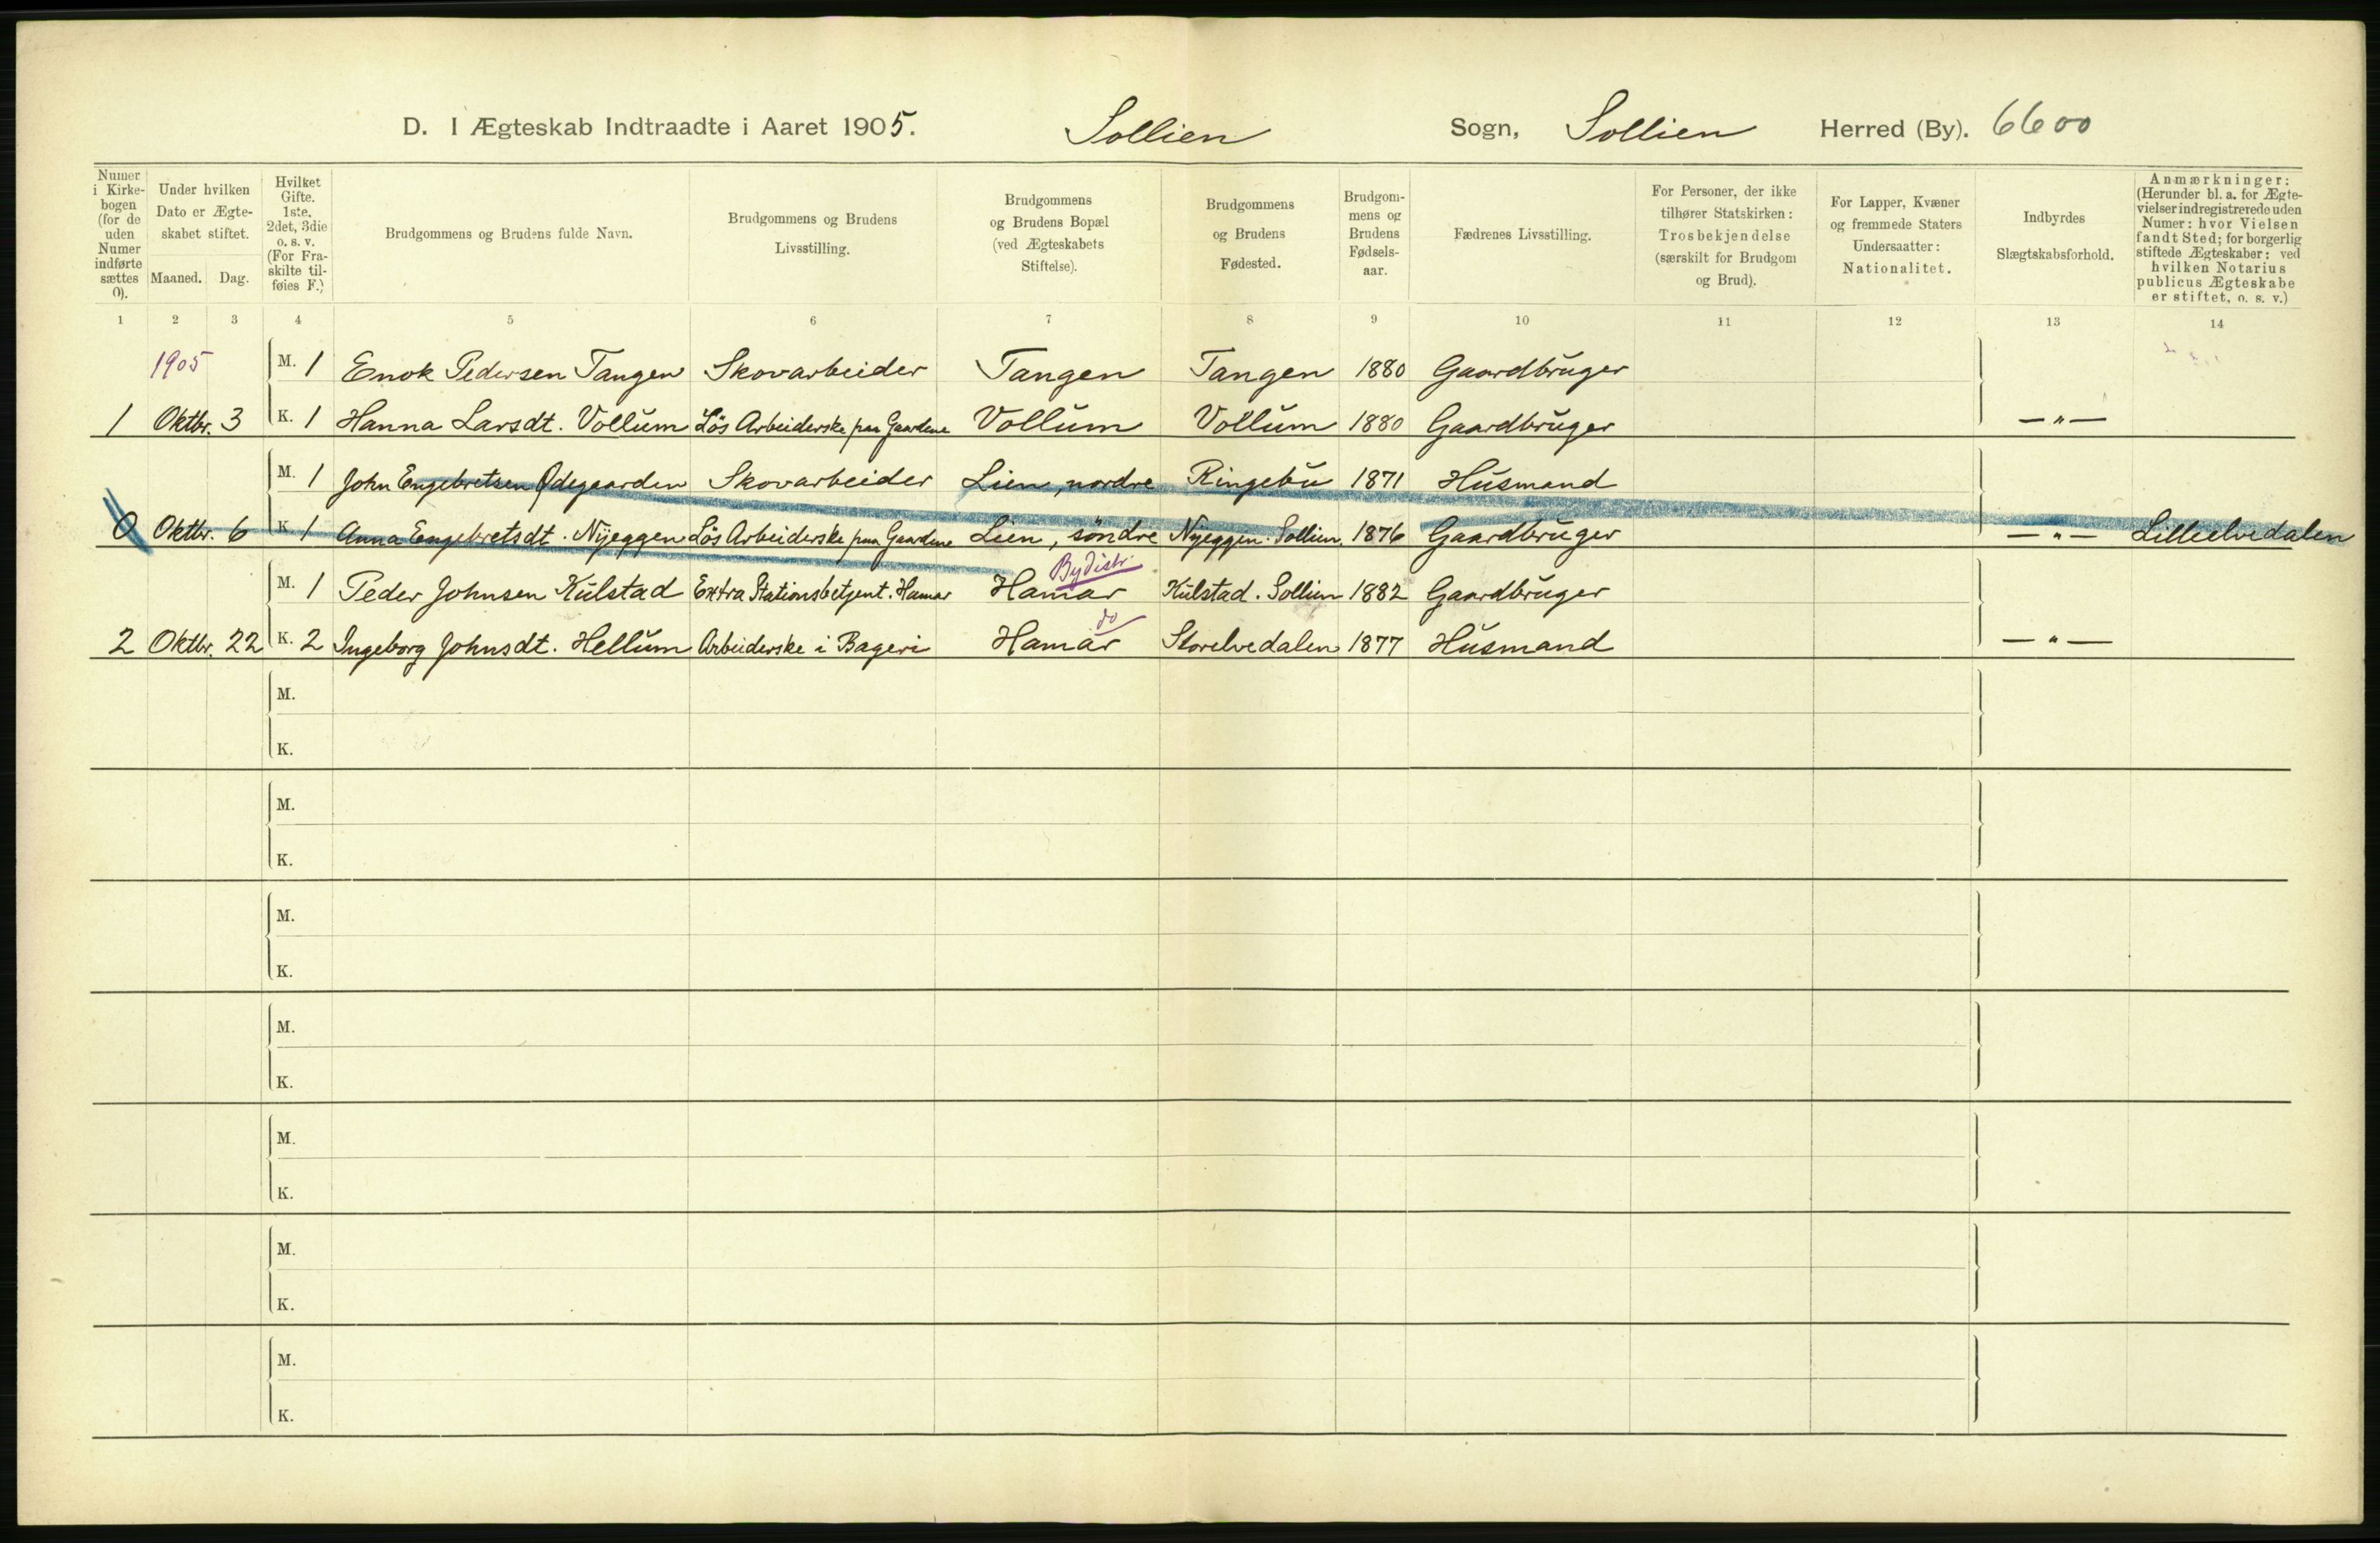 D. I Ægteskab Indtraadte i Aaret 1905. Sollien Sogn, Sollien Herred (By). 6600
Numer i Kirke-bogen (for de uden Numer indførte sættes 0).
Under hvilken Dato er Ægte-skabet stiftet.
Maaned. Dag.
Hvilket Gifte. 1ste, 2det, 3die o. s. v. (For Fra-skilte til-føies F.)
Brudgommens og Brudens fulde Navn.
Brudgommens og Brudens Livsstilling.
Brudgommens og Brudens Bopæl (ved Ægteskabets Stiftelse).
Brudgommens og Brudens Fødested.
Brudgom-mens og Brudens Fødsels-aar.
Fædrenes Livsstilling.
For Personer, der ikke tilhører Statskirken: Trosbekjendelse (særskilt for Brudgom og Brud).
For Lapper, Kvæner og fremmede Staters Undersaatter: Nationalitet.
Indbyrdes Slægtskabsforhold.
Anmærkninger: (Herunder bl. a. for Ægte-vielser indregistrerede uden Numer: hvor Vielsen fandt Sted; for borgerlig stiftede Ægteskaber: ved hvilken Notarius publicus Ægteskabe er stiftet, o. s. v.)
1 2 3 4 5 6 7 8 9 10 11 12 13 14
1905 M. 1 Enok Pedersen Tangen Skovarbeider Tangen Tangen 1880 Gaardbruger
1 Oktbr. 3 K. 1 Hanna Larsdt. Vollum Løs Arbeiderske paa Gaardene Vollum Vollum 1880 Gaardbruger — " —
M. 1 John Engebretsen Ødegaarden Skovarbeider Lien, nordre Ringebu 1871 Husmand
0 Oktbr. 6 K. 1 Anna Engebretsdt. Nyeggen Løs Arbeiderske paa Gaardene Lien, söndre Nyeggen. Sollien. 1876 Gaardbruger — " — Lilleelvedalen
Bydistr.
M. 1 Peder Johnsen Kulstad Extra Stationsbetjent. Hamar Hamar Kulstad. Sollien 1882 Gaardbruger
do
2 Oktbr. 22 K. 2 Ingeborg Johnsdt. Hellum Arbeiderske i Bageri Hamar Storelvedalen 1877 Husmand — " —
M.
K.
M.
K.
M.
K.
M.
K.
M.
K.
M.
K.
M.
K.